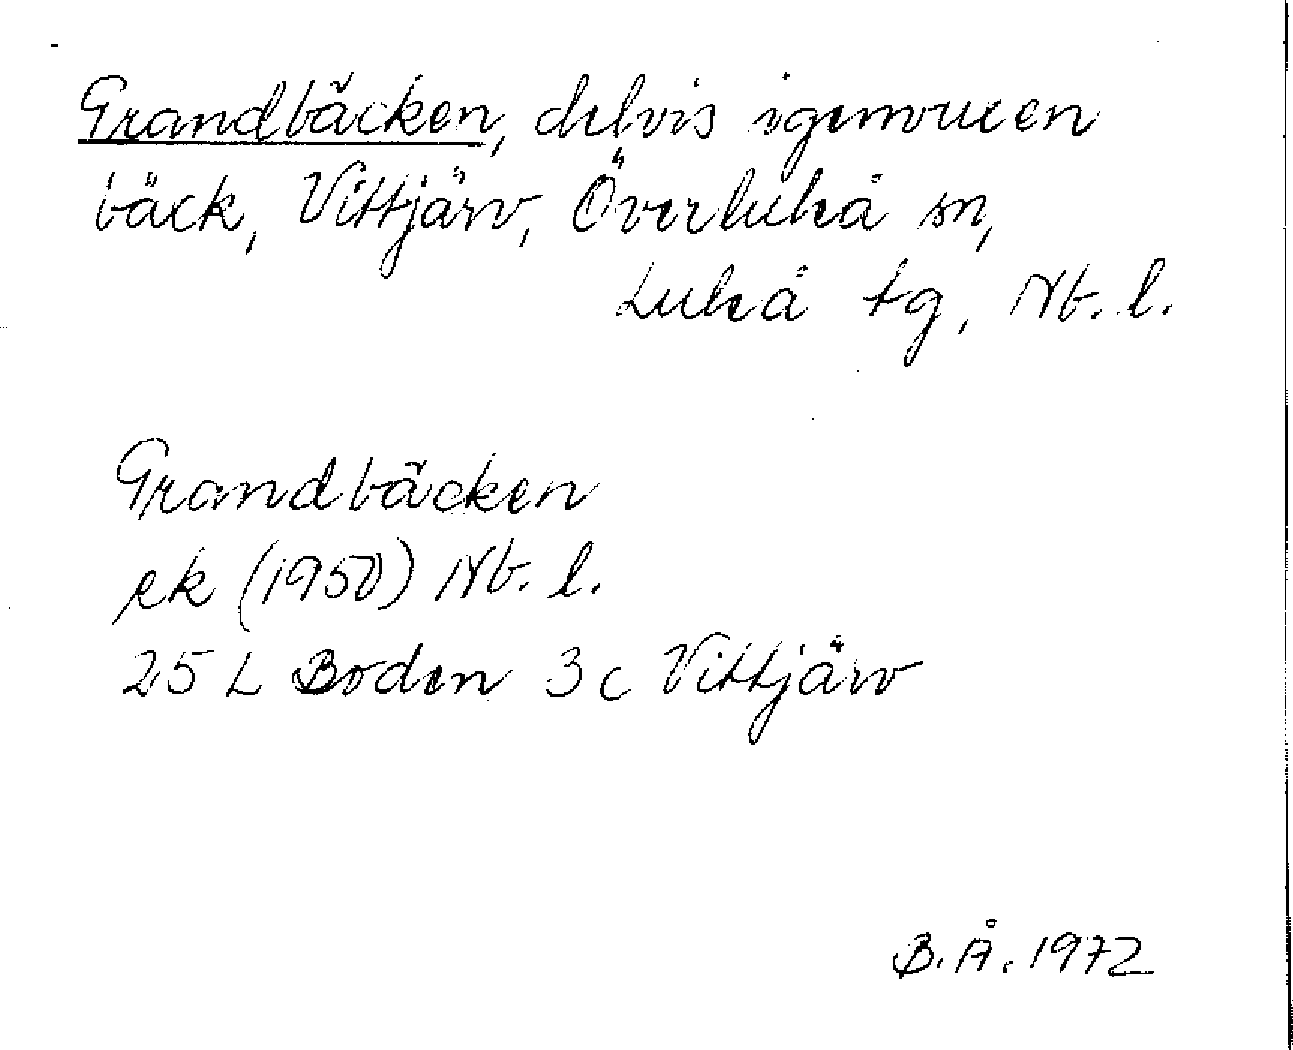 Grandbäcken, delvis igenvuxen
bäck, Vittjärv, Överluleå sn,
Luleå tg, Nb. l.
Grandbäcken
ek (1950) Nb. l.
25 L Boden 3 c Vittjärv
B. Å. 1972